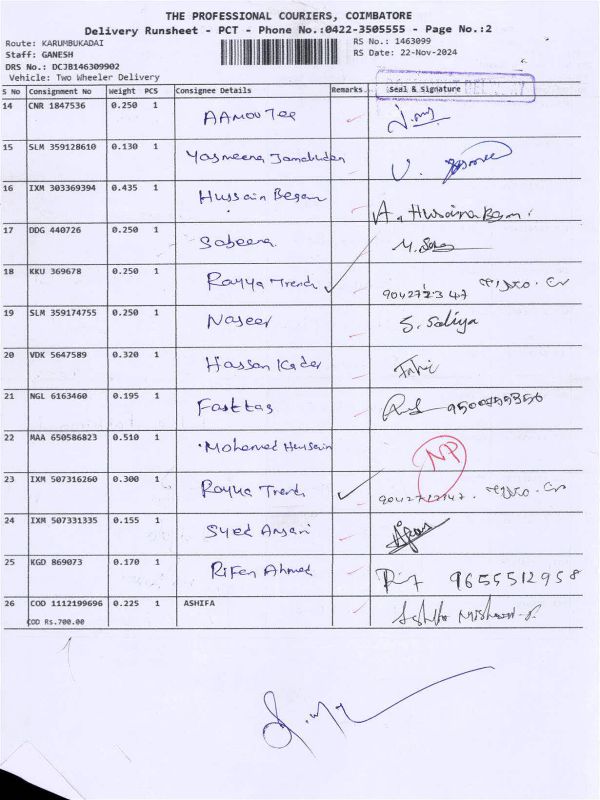 THE PROFESSIONAL COURIERS, COIMBATORE
Delivery Runsheet - PCT - Phone No.:0422-3505555 - Page No.:2
Route: KARUMBUKADAI RS No.: 1463099
Staff: GANESH RS Date: 22-Nov-2024
DRS No.: DCJB146309902
Vehicle: Two Wheeler Delivery
S No Consignment No Weight PCS Consignee Details Remarks Seal & Signature
14 CNR 1847536 0.250 1
15 SLM 359128610 0.130 1 Yasmeena Jamaluden
16 IXM 303369394 0.435 1 Hussain Began A. Husaina Begam.
17 DDG 440726 0.250 1 Sabeena
18 KKU 369678 0.250 1 Rayya Trend
19 SLM 359174755 0.250 1 Naseer S. Saliya
20 VDK 5647589 0.320 1 Hassan Kader
21 NGL 6163460 0.195 1 Fasttag
22 MAA 650586823 0.510 1 Mohamed Hussain NP
23 IXM 507316260 0.300 1 Rayya Trend
24 IXM 507331335 0.155 1 Syed Ansari
25 KGD 869073 0.170 1 Rifan Ahmed 9655512958
26 COD 1112199696 0.225 1 ASHIFA
COD Rs.700.00